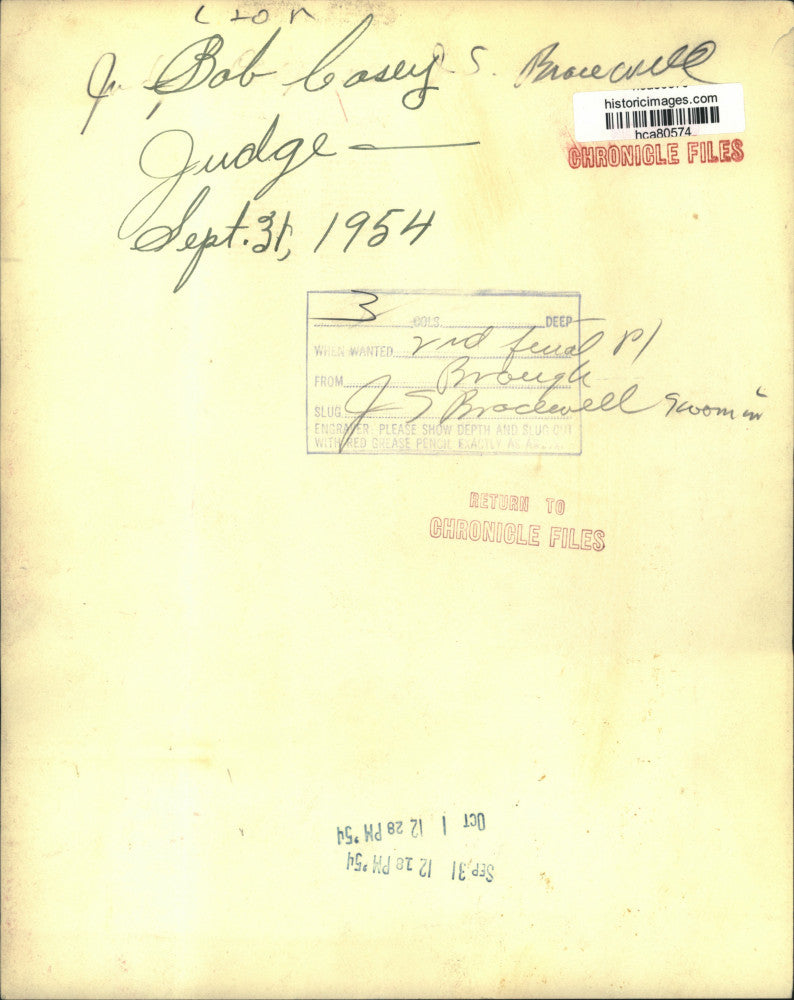 J. Bob Casey S. Bracewell
historicimages.com
hca80574
CHRONICLE FILES
Judge —
Sept. 31, 1954
3 COLS. DEEP
WHEN WANTED 2nd final P1
FROM Brough
SLUG J S Bracewell sworn in
ENGRAVER: PLEASE SHOW DEPTH AND SLUG OUT
WITH RED GREASE PENCIL EXACTLY AS
RETURN TO
CHRONICLE FILES
OCT 1 12 28 PM '54
SEP 31 12 28 PM '54